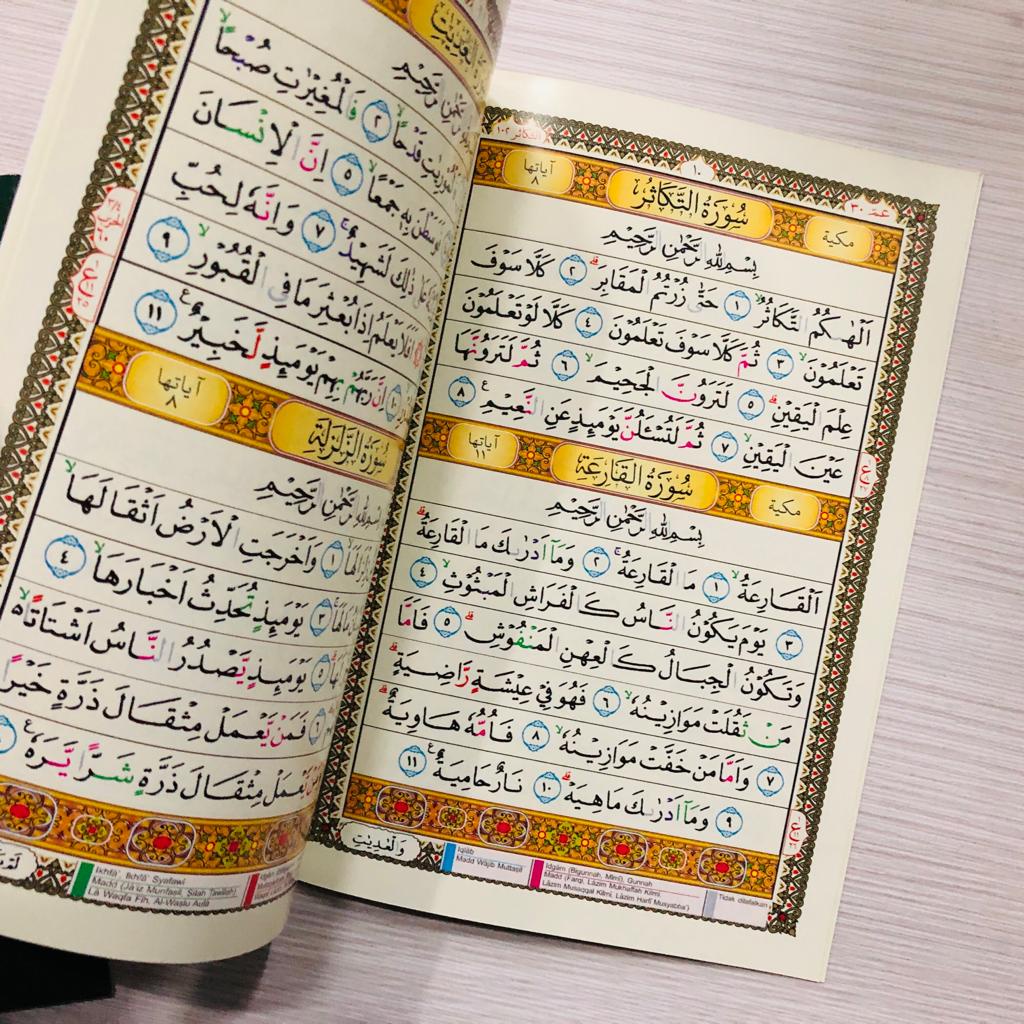 عمّ ٣٠ ١٠ التكاثر ١٠٢
مكية سُورَةُ التَّكَاثُرِ آياتها ٨
بِسْمِ اللهِ الرَّحْمٰنِ الرَّحِيْمِ
اَلْهٰىكُمُ التَّكَاثُرُۙ ١ حَتّٰى زُرْتُمُ الْمَقَابِرَۗ ٢ كَلَّا سَوْفَ
تَعْلَمُوْنَۙ ٣ ثُمَّ كَلَّا سَوْفَ تَعْلَمُوْنَ ٤ كَلَّا لَوْ تَعْلَمُوْنَ
عِلْمَ الْيَقِيْنِۗ ٥ لَتَرَوُنَّ الْجَحِيْمَۙ ٦ ثُمَّ لَتَرَوُنَّهَا
عَيْنَ الْيَقِيْنِۙ ٧ ثُمَّ لَتُسْـَٔلُنَّ يَوْمَىِٕذٍ عَنِ النَّعِيْمِ ࣖ ٨
مكية سُورَةُ القَارِعَةِ آياتها ١١
بِسْمِ اللهِ الرَّحْمٰنِ الرَّحِيْمِ
اَلْقَارِعَةُۙ ١ مَا الْقَارِعَةُۚ ٢ وَمَآ اَدْرٰىكَ مَا الْقَارِعَةُۗ
٣ يَوْمَ يَكُوْنُ النَّاسُ كَالْفَرَاشِ الْمَبْثُوْثِۙ ٤
وَتَكُوْنُ الْجِبَالُ كَالْعِهْنِ الْمَنْفُوْشِۗ ٥ فَاَمَّا
مَنْ ثَقُلَتْ مَوَازِيْنُهٗۙ ٦ فَهُوَ فِيْ عِيْشَةٍ رَّاضِيَةٍۗ
٧ وَاَمَّا مَنْ خَفَّتْ مَوَازِيْنُهٗۙ ٨ فَاُمُّهٗ هَاوِيَةٌۗ
٩ وَمَآ اَدْرٰىكَ مَا هِيَهْۗ ١٠ نَارٌ حَامِيَةٌ ࣖ ١١
وَالْعٰدِيٰتِ
Iqlāb
Madd Wājib Muttaṣil
Idgām (Bigunnah, Mīmī), Gunnah
Madd (Farqī, Lāzim Mukhaffah Kilmī,
Lāzim Musaqqal Kilmī, Lāzim Ḥarfī Musyabba')
Tidak dilafalkan
العٰدِيٰتِ
الرَّحِيْمِ
قَدْحًاۙ ٢ فَالْمُغِيْرٰتِ صُبْحًاۙ
بِهٖ جَمْعًاۙ ٥ اِنَّ الْاِنْسَانَ
ذٰلِكَ لَشَهِيْدٌۚ ٧ وَاِنَّهٗ لِحُبِّ
يَعْلَمُ اِذَا بُعْثِرَ مَا فِى الْقُبُوْرِۙ ٩
١٠ اِنَّ رَبَّهُمْ بِهِمْ يَوْمَىِٕذٍ لَّخَبِيْرٌ ࣖ ١١
سُورَةُ الزَّلْزَلَةِ آياتها ٨
الرَّحْمٰنِ الرَّحِيْمِ
١ وَاَخْرَجَتِ الْاَرْضُ اَثْقَالَهَاۙ
٣ يَوْمَىِٕذٍ تُحَدِّثُ اَخْبَارَهَاۙ ٤
٥ يَوْمَىِٕذٍ يَّصْدُرُ النَّاسُ اَشْتَاتًا ەۙ
٦ فَمَنْ يَّعْمَلْ مِثْقَالَ ذَرَّةٍ خَيْرًا
يَّعْمَلْ مِثْقَالَ ذَرَّةٍ شَرًّا يَّرَهٗ ࣖ
الحزب ٦٠
Ikhfā', Ikhfā' Syafawī
Madd (Jā'iz Munfaṣil, Ṣilah Ṭawīlah)
Lā Waqfa Fīh, Al-Waṣlu Aulā